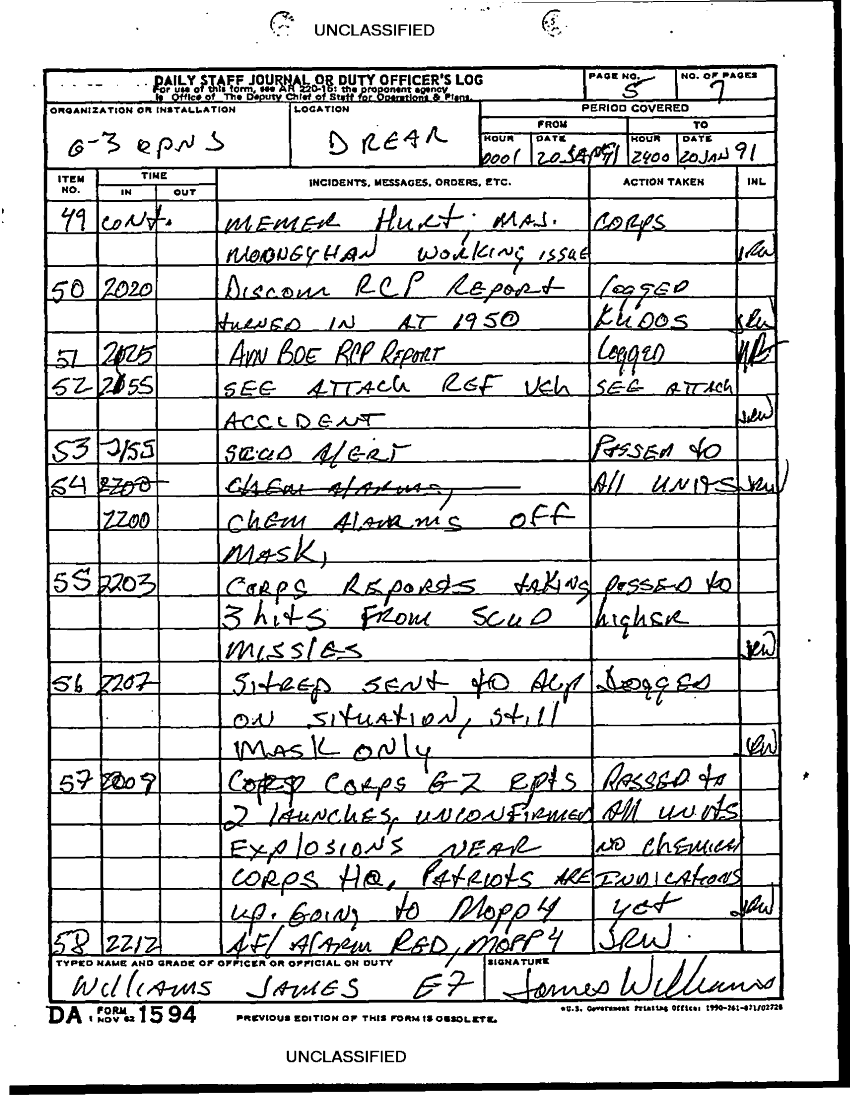 UNCLASSIFIED
DAILY STAFF JOURNAL OR DUTY OFFICER'S LOG
For use of this form, see AR 220-15; the proponent agency
is Office of The Deputy Chief of Staff for Operations & Plans.
PAGE NO. 5
NO. OF PAGES 7
ORGANIZATION OR INSTALLATION
G-3
LOCATION
D REAR
PERIOD COVERED
FROM TO
HOUR DATE HOUR DATE
0001 20 JAN 91 2400 20 JAN 91
ITEM NO. TIME IN OUT INCIDENTS, MESSAGES, ORDERS, ETC. ACTION TAKEN INL
49 cont. MEMER HURT; MAJ. CORPS
MOONEYHAN WORKING ISSUE JRW
50 2020 DISCOM RCP REPORT logged
turned IN AT 1950 KUDOS JRW
51 2025 AVN BDE RCP REPORT Logged
52 2155 SEE ATTACH REF VEH SEE ATTACH
ACCIDENT JRW
53 2155 SCUD AlERT PASSED to
54 2200 CHEM AlARMS, All UNITS JRW
2200 CHEM AlARMS OFF
MASK,
55 2203 CORPS REPORTS tAKING PASSED to
3 hits FROM SCUD higher
MISSlES JRW
56 2207 SITREP SENT TO ACP LOGGED
ON SITUATION, Still
MASK ONLY JRW
57 2209 CORPS G-2 RPTS PASSED to
2 lAUNCHES, UNCONFIRMED All UNITS
EXPlOSIONS NEAR NO CHEMICAl
CORPS HQ, PATRIOTS ARE INDICATIONS
UP. GOING to MOPP 4 yet JRW
58 2212 AF/ AlARM RED, MOPP 4 JRW.
TYPED NAME AND GRADE OF OFFICER OR OFFICIAL ON DUTY
WIllIAMS JAMES E7
SIGNATURE
James Williams
DA FORM 1 NOV 62 1594
PREVIOUS EDITION OF THIS FORM IS OBSOLETE.
*U.S. Government Printing Office: 1990-261-871/02728
UNCLASSIFIED